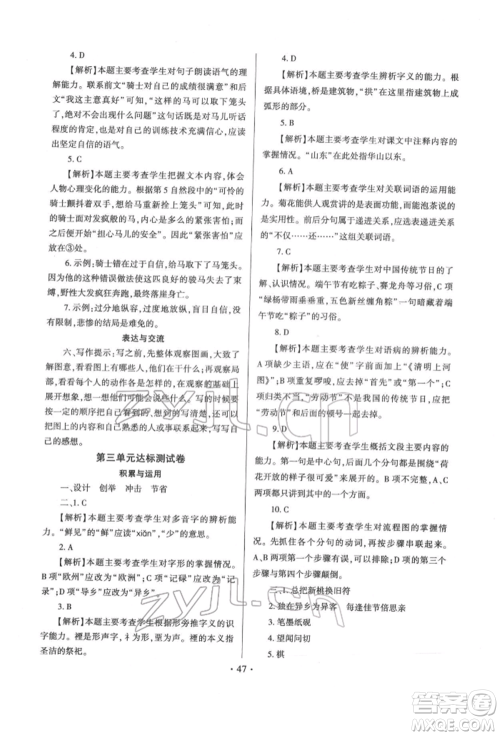 4. D
【解析】本题主要考查学生对句子朗读语气的理解能力。联系前文“骑士对自己的操作很满意”和后文“我这主意真好”可以看出,当取下马笼头之后没有出现什么问题时,骑士对马儿听话程度的肯定,以及对自己的训练技术充满信心,应读出坚定自信的语气。
5. C
【解析】本题主要考查学生把握文本内容,体会人物心理变化的能力。根据第 5 自然段中的“可怜的骑士颤抖着双手”,可以体会到在马受惊狂奔的时候骑士面对发疯般的马的心情是紧张害怕的;而由于马跑走了“担心马儿的安全”。因此“紧张害怕”应放在③处。
6. 示例:错误在于过于自信,给马取下了马笼头。他的这种错误做法直接导致了马不受他的控制了,野性大发疯狂奔跑,最后身亡。
7. 示例:自由是有限制的,过分地放任自由,没有限制,悲惨的结局是难免的。
表达与交流
六、写作提示:写之前,先整体观察图画,由图意展开想象,看看图上有哪些人,他们在干什么,想象他们说了什么话。写的时候要在图画的基础上展开想象,把自己看到的、想到的写清楚。写作时可以按照一定的顺序把图画的内容写清楚,最后可以写一写自己的感想。
第三单元达标测试卷
积累与运用
一、设计 创举 冲击 节省
二、1. C
【解析】本题主要考查学生对多音字的辨析能力。“鲜见”的“鲜”应读“xiǎn”,是“少”的意思。
2. A
【解析】本题主要考查学生对字形的掌握情况。B项“欧州”应改为“欧洲”;C项“记碌”应改为“记录”;D项“导乡”应改为“异乡”。
3. B
【解析】本题主要考查学生根据形旁推字义的能力。“礻”部的字大多与祭祀有关。“禋”的本义指圣洁的祭祀。
4. D
【解析】本题主要考查学生辨析字义的能力。根据具体语境,桥是建筑物,“拱”在此处是“建筑物上成弧形的部分”的意思。
5. B
【解析】本题主要考查学生对课文中注释内容的掌握情况。“山东”在此处指华山以东。
6. A
【解析】本题主要考查学生对关联词语的运用能力。菊花能供人观赏讲的是表面功能,而能泡茶说的是实用性。前后分句属于递进关系,应使用表递进关系的“不仅……还……”这组关联词语。
7. C
【解析】本题主要考查学生对中国传统节日的了解、认识情况。端午节有吃粽子、赛龙舟等习俗,C项“绿杨带雨垂垂重,五色新丝缠角粽”一句暗藏着端午节吃“粽子”的习俗。
8. D
【解析】本题主要考查学生对语病的辨析能力。A项重复啰唆,应去掉“首先”或“第一”;B项不合逻辑,应把“古代”去掉或者在后面加上《清明上河图》;C项“劳动节”不属于传统节日,应把“劳动节”去掉。
9. D
【解析】本题主要考查学生概括文段主要内容的能力。文段主要围绕“荷花已经开了不少了”这句话来写荷花的不同样子,所以用“各种各样的荷花”来概括这段话的主要内容最合适。
10. C
【解析】本题主要考查学生对流程图的掌握情况。A、B项不能按步骤串联起来;D项的第三个步骤与第一个步骤颠倒了。
三、1. 总把新桃换旧符
2. 独在异乡为异客 每逢佳节倍思亲
3. 笔墨纸砚
4. 望闻问切
5. 棋
• 47 •
zyjl.cn
zyjl.cn
答案圈
MXQE.COM